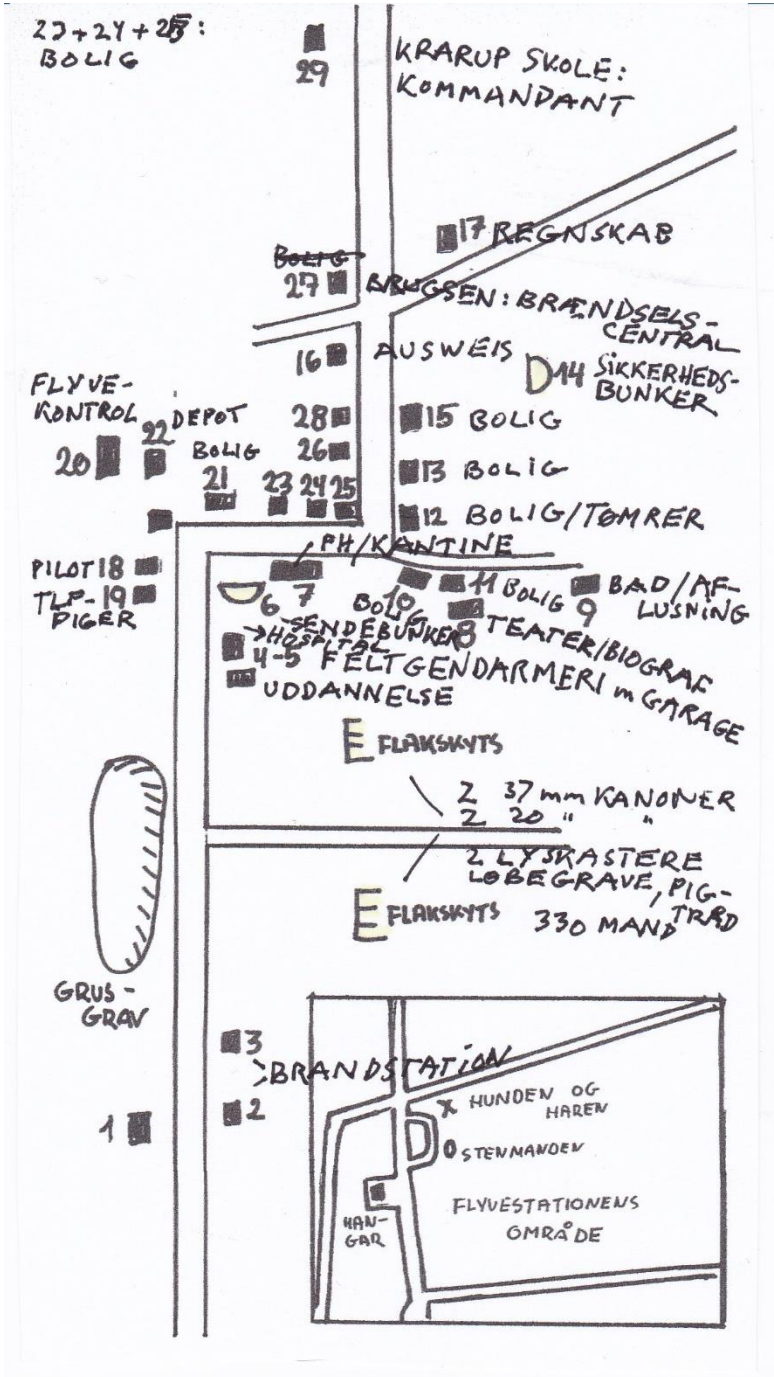 23+24+25:
BOLIG
29
KRARUP SKOLE:
KOMMANDANT
17 REGNSKAB
BOLIG
27
BRUGSEN: BRÆNDSELS-
CENTRAL
16
AUSWEIS
14 SIKKERHEDS-
BUNKER
FLYVE-
KONTROL
20
22 DEPOT
BOLIG
21
28
26
23 24 25
15 BOLIG
13 BOLIG
12 BOLIG/TØMRER
PH/KANTINE
PILOT 18
TLP- 19
PIGER
6 7
BOLIG
10
11 BOLIG
9
BAD/AF-
LUSNING
SENDEBUNKER
8 TEATER/BIOGRAF
→HOSPITAL
4-5 FELTGENDARMERI m GARAGE
UDDANNELSE
FLAKSKYTS
2 37 mm KANONER
2 20 " "
2 LYSKASTERE
LØBEGRAVE, PIG-
TRÅD
FLAKSKYTS
330 MAND
GRUS-
GRAV
3
BRANDSTATION
2
1
X HUNDEN OG
HAREN
STENMANDEN
HAN-
GAR
FLYVESTATIONENS
OMRÅDE